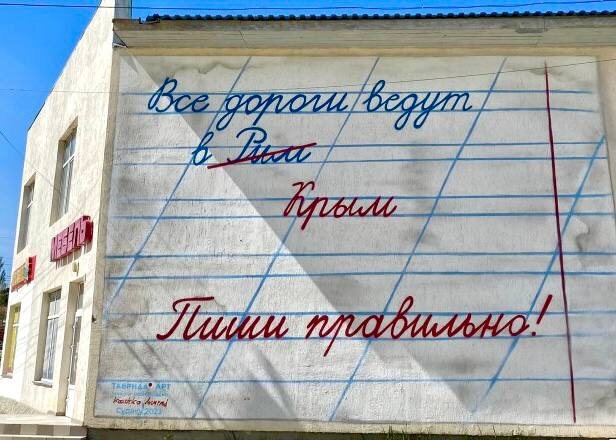 Все дороги ведут
в Рим
Крым
Пиши правильно!
МЕБЕЛЬ
ТАВРИДА АРТ
Судак 2023